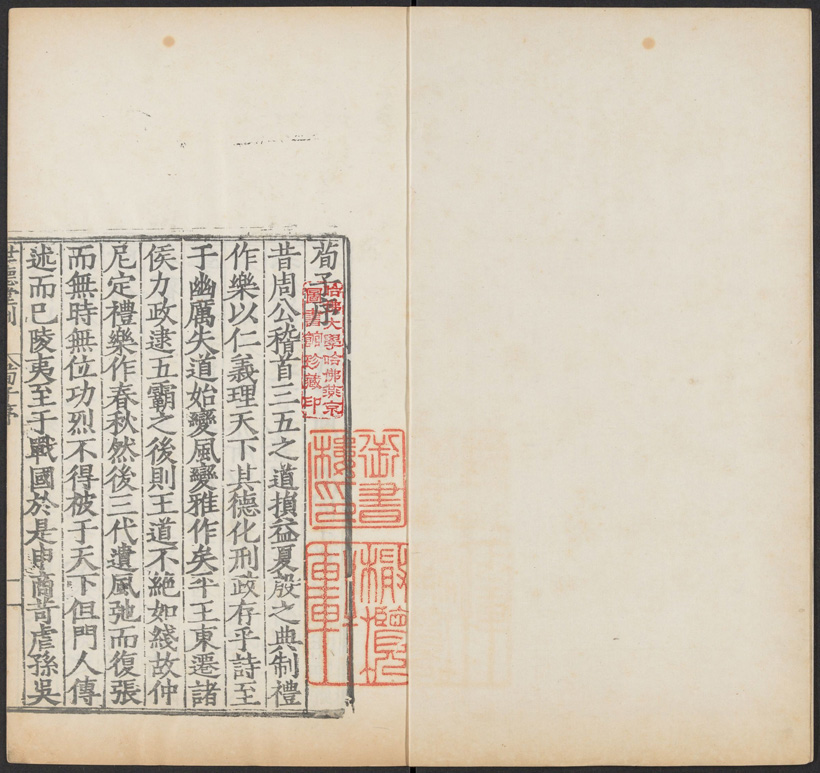 荀子序
昔周公稽首三五之道損益夏殷之典制禮
作樂以仁義理天下其德化刑政存乎詩至
于幽厲失道始變風變雅作矣平王東遷諸
侯力政逮五霸之後則王道不絶如綫故仲
尼定禮樂作春秋然後三代遺風弛而復張
而無時無位功烈不得被于天下但門人傳
述而已陵夷至于戰國於是申商苛虐孫吳
世德堂刊 荀子序 一
哈佛大學哈佛燕京
圖書館珍藏印
御書
樓印